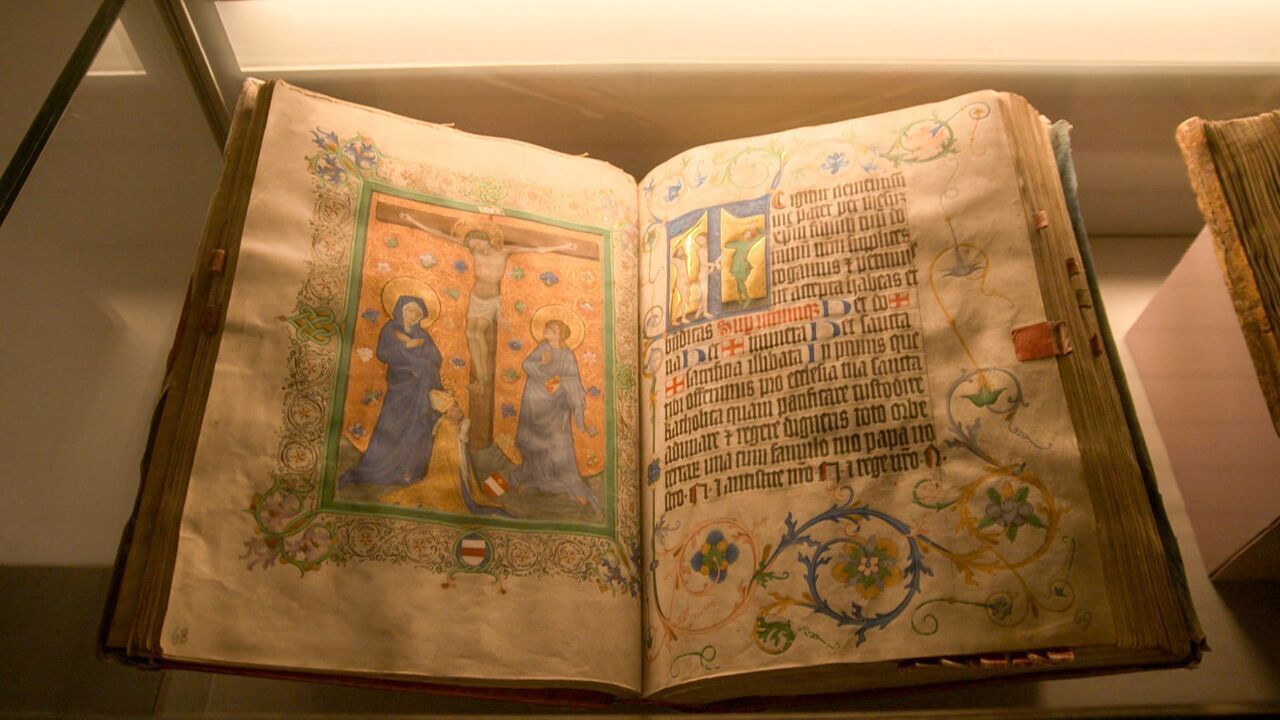 E igitur clementissi
me pater per ihesu
xpm filiu tuu do
minu supplices
rogamus ⁊ petimus
uti accepta habeas et
Hec do ✠
na Hec ✠ munera Hec sancta
✠ sacrificia illibata In primis que
tibi offerimus pro ecclesia tua sancta
katholica quam pacificare custodire
adunare ⁊ regere digneris toto orbe
una cum famulo tuo papa no
stro N ⁊ antistite nro N ⁊ rege nro N
68
69